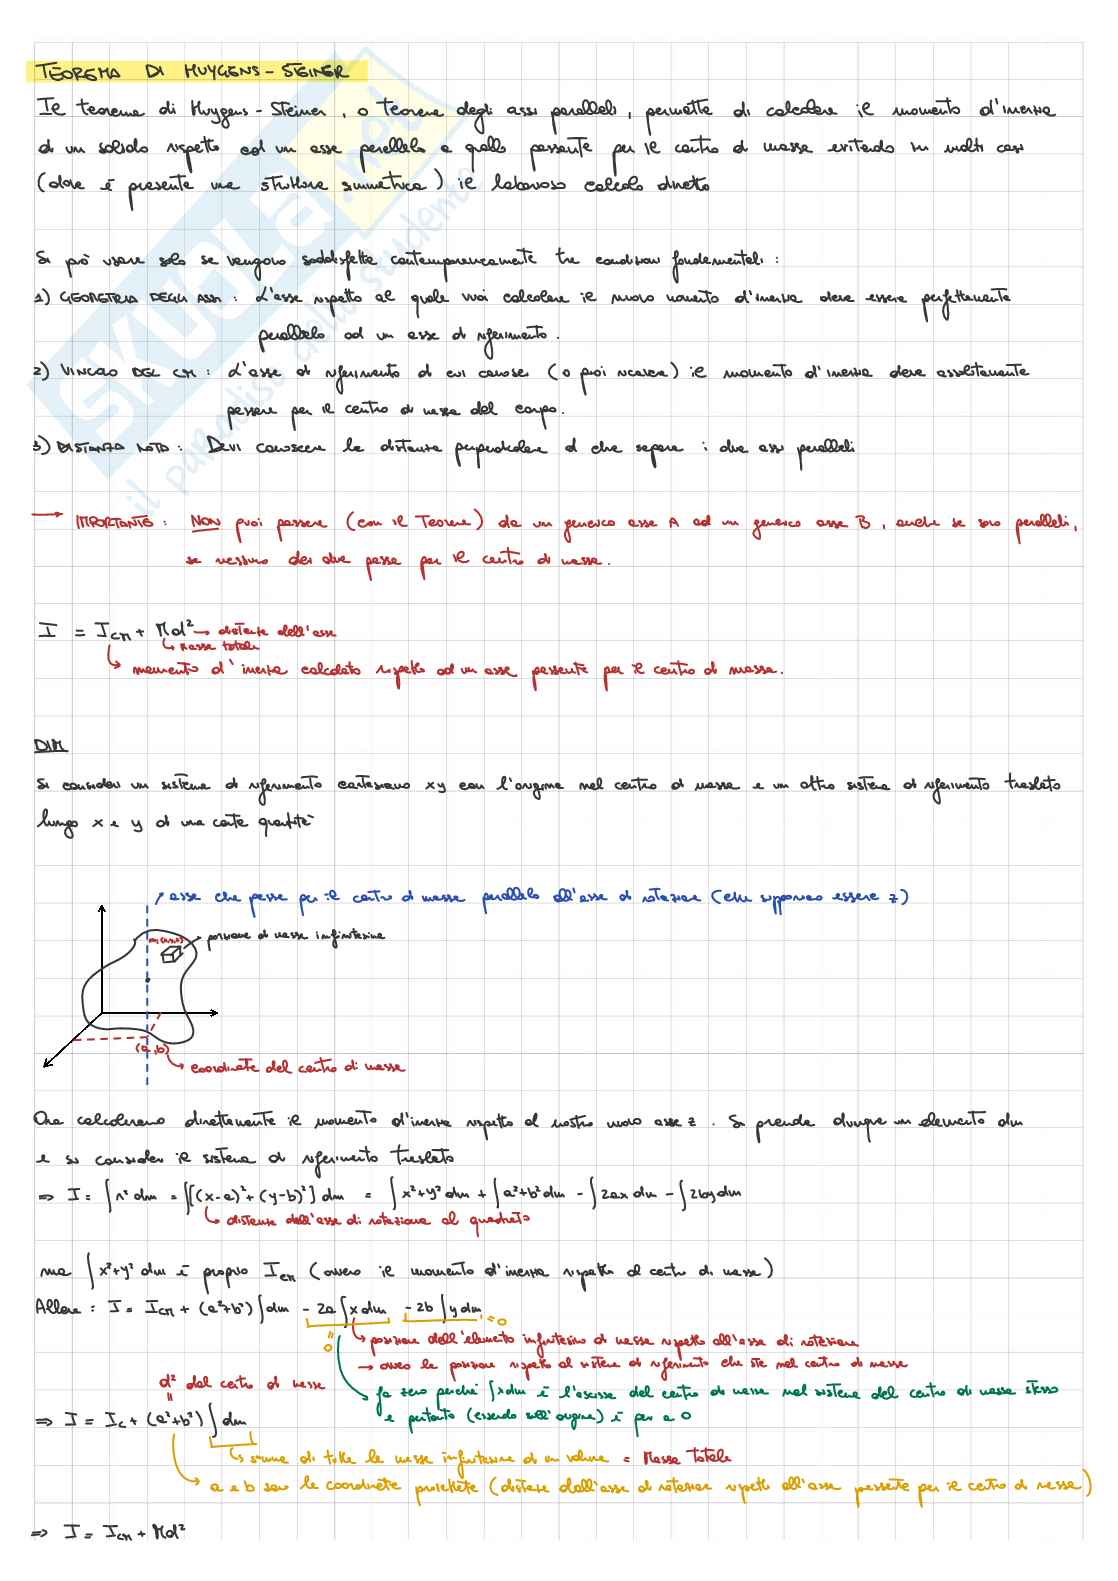 TEOREMA DI HUYGENS-STEINER
Il teorema di Huygens-Steiner, o teorema degli assi paralleli, permette di calcolare il momento d'inerzia
di un solido rispetto ad un asse parallelo a quello passante per il centro di massa evitando in molti casi
(dove è presente una struttura simmetrica) il laborioso calcolo diretto
Si può usare solo se vengono soddisfatte contemporaneamente tre condizioni fondamentali:
1) GEOMETRIA DEGLI ASSI: L'asse rispetto al quale vuoi calcolare il nuovo momento d'inerzia deve essere perfettamente
parallelo ad un asse di riferimento.
2) VINCOLO DEL CM: L'asse di riferimento di cui conosci (o puoi ricavare) il momento d'inerzia deve assolutamente
passare per il centro di massa del corpo.
3) DISTANZA NOTA: Devi conoscere la distanza perpendicolare d che separa i due assi paralleli
→ IMPORTANTE: NON puoi passare (con il Teorema) da un generico asse A ad un generico asse B, anche se sono paralleli,
se nessuno dei due passa per il centro di massa.
I = I_CM + Md² → distanza dall'asse
↳ massa totale
↳ momento d'inerzia calcolato rispetto ad un asse passante per il centro di massa.
DIM
Si consideri un sistema di riferimento cartesiano xy con l'origine nel centro di massa e un altro sistema di riferimento traslato
lungo x e y di una certa quantità
asse che passa per il centro di massa parallelo all'asse di rotazione (che supponiamo essere z)
porzione di massa infinitesima
(a,b)
↳ coordinate del centro di massa
Ora calcoliamo direttamente il momento d'inerzia rispetto al nostro nuovo asse z. Si prenda dunque un elemento dm
e si consideri il sistema di riferimento traslato
⇒ I = ∫r² dm = ∫[(x-a)² + (y-b)²] dm = ∫x²+y² dm + ∫a²+b² dm - ∫2ax dm - ∫2by dm
↳ distanza dall'asse di rotazione al quadrato
ma ∫x²+y² dm è proprio I_CM (ovvero il momento d'inerzia rispetto al centro di massa)
Allora: I = I_CM + (a²+b²)∫dm - 2a∫x dm - 2b∫y dm = 0
= 0
→ posizione dell'elemento infinitesimo di massa rispetto all'asse di rotazione
→ ovvero la posizione rispetto al sistema di riferimento che sta nel centro di massa
d² dal centro di massa
→ fa zero perché ∫xdm è l'ascissa del centro di massa nel sistema del centro di massa stesso
e pertanto (essendo sull'origine) è pari a 0
⇒ I = I_C + (a²+b²)∫dm
↳ somma di tutte le masse infinitesime di un volume = Massa Totale
→ a e b sono le coordinate proiettate (distanza dall'asse di rotazione rispetto all'asse passante per il centro di massa)
⇒ I = I_CM + Md²
SKUOLA.net
il paradiso dello studente